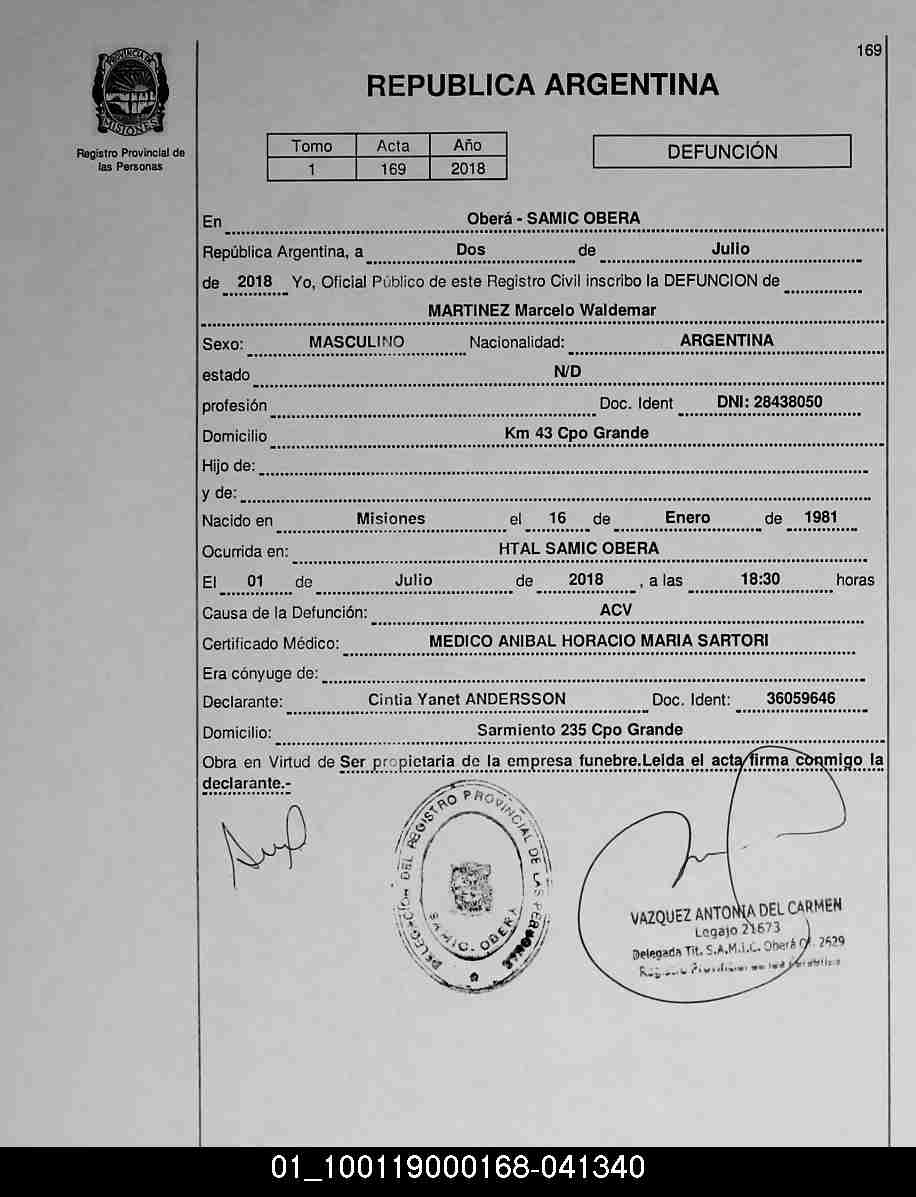 169
PROVINCIA DE
MISIONES
Registro Provincial de
las Personas
REPUBLICA ARGENTINA
Tomo Acta Año
1 169 2018
DEFUNCIÓN
En Oberá - SAMIC OBERA
República Argentina, a Dos de Julio
de 2018 Yo, Oficial Público de este Registro Civil inscribo la DEFUNCION de
MARTINEZ Marcelo Waldemar
Sexo: MASCULINO Nacionalidad: ARGENTINA
estado N/D
profesión Doc. Ident DNI: 28438050
Domicilio Km 43 Cpo Grande
Hijo de:
y de:
Nacido en Misiones el 16 de Enero de 1981
Ocurrida en: HTAL SAMIC OBERA
El 01 de Julio de 2018 , a las 18:30 horas
Causa de la Defunción: ACV
Certificado Médico: MEDICO ANIBAL HORACIO MARIA SARTORI
Era cónyuge de:
Declarante: Cintia Yanet ANDERSSON Doc. Ident: 36059646
Domicilio: Sarmiento 235 Cpo Grande
Obra en Virtud de Ser propietaria de la empresa funebre.Leida el acta firma conmigo la
declarante.-
DELEGACIÓN DEL REGISTRO PROVINCIAL DE LAS PERSONAS
SAMIC. OBERA
VAZQUEZ ANTONIA DEL CARMEN
Legajo 21673
Delegada Tit. S.A.M.I.C. Oberá Of. 2629
01_100119000168-041340